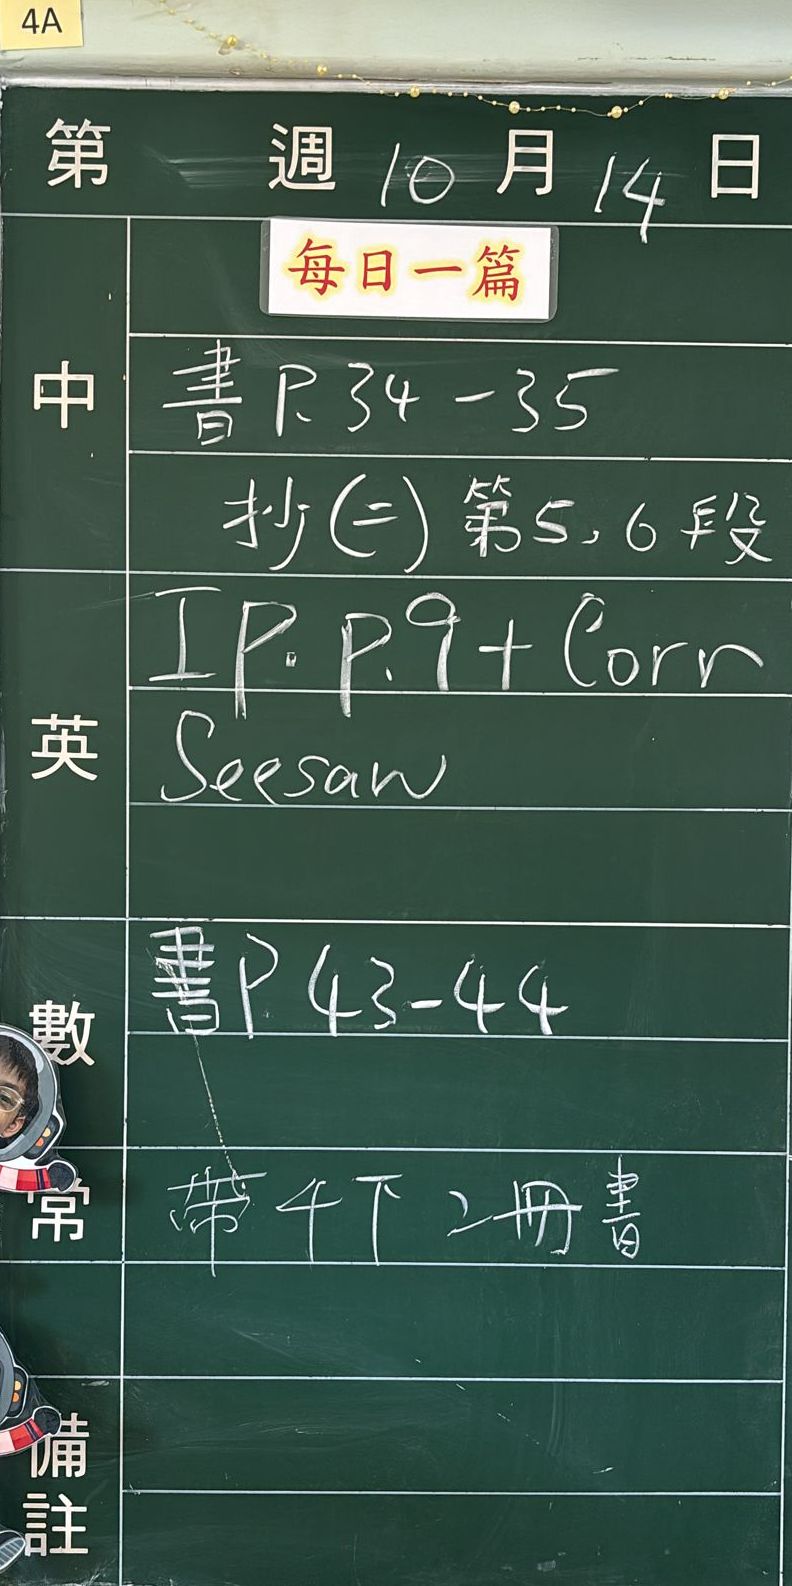 4A
第 週 10 月 14 日
每日一篇
中
書 P. 34-35
抄(二) 第5,6段
英
I P. P.9 + Corr
Seesaw
數
書P 43-44
常
帶 4下 2冊書
備註